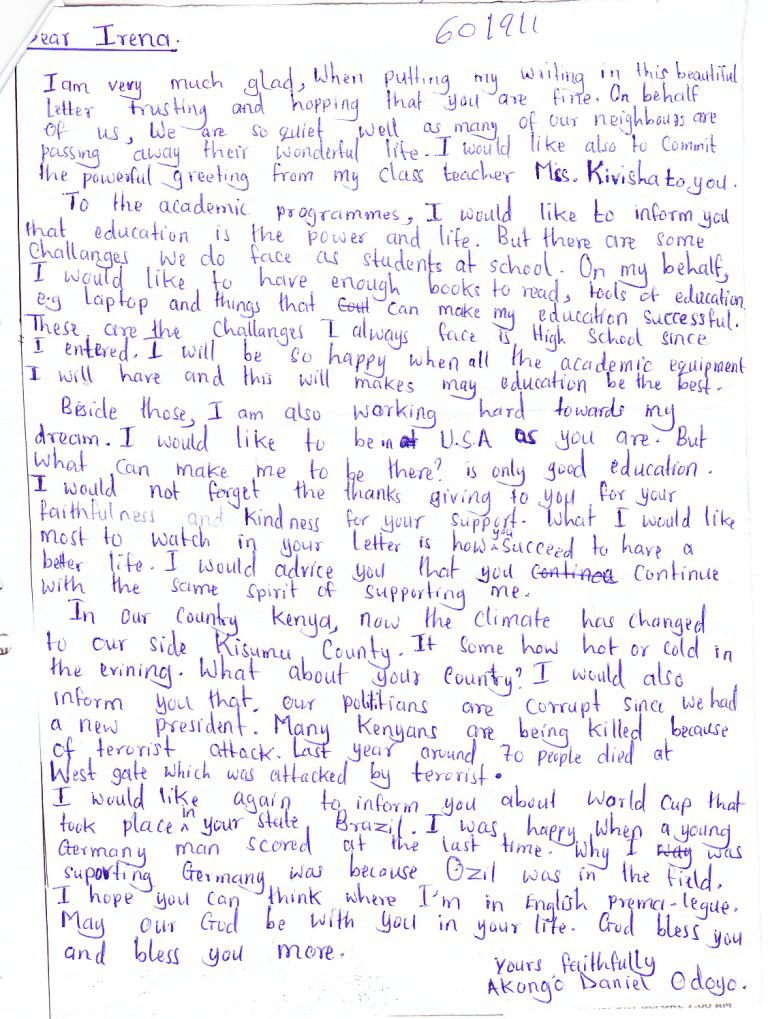 Dear Irena.
601911
I am very much glad, When putting my writing in this beautiful
Letter trusting and hopping that you are fine. On behalf
Of us, We are so quiet well as many of our neighbours are
passing away their wonderful life. I would like also to Commit
the powerful greeting from my class teacher Mrs. Kivisha to you.
To the academic programmes, I would like to inform you
that education is the power and life. But there are some
Challanges we do face as students at school. On my behalf,
I would like to have enough books to read, tools of education
e.g laptop and things that Coul can make my education successful.
These are the Challanges I always face is High School since
I entered. I will be so happy when all the academic equipment
I will have and this will makes may education be the best.
Beside those, I am also working hard towards my
dream. I would like to be in at U.S.A as you are. But
What can make me to be there? is only good education.
I would not forget the thanks giving to you for your
faithfulness and Kindness for your support. What I would like
most to watch in your Letter is how you succeed to have a
better life. I would advice you that you continea Continue
with the same spirit of supporting me.
In our Country Kenya, now the climate has changed
to our side Kisumu County. It some how hot or cold in
the evining. What about your Country? I would also
inform you that, our polititians are Corrupt since we had
a new president. Many Kenyans are being killed because
of terorist attack. Last year around 70 people died at
West gate which was attacked by terorist.
I would like again to inform you about World Cup that
took place in your state Brazil. I was happy when a young
Germany man scored at the last time. Why I way was
suporting Germany was because Ozil was in the field.
I hope you can think where I'm in English prema-legue.
May our God be with you in your life. God bless you
and bless you more.
Yours faithfully
Akongo Daniel Odoyo.